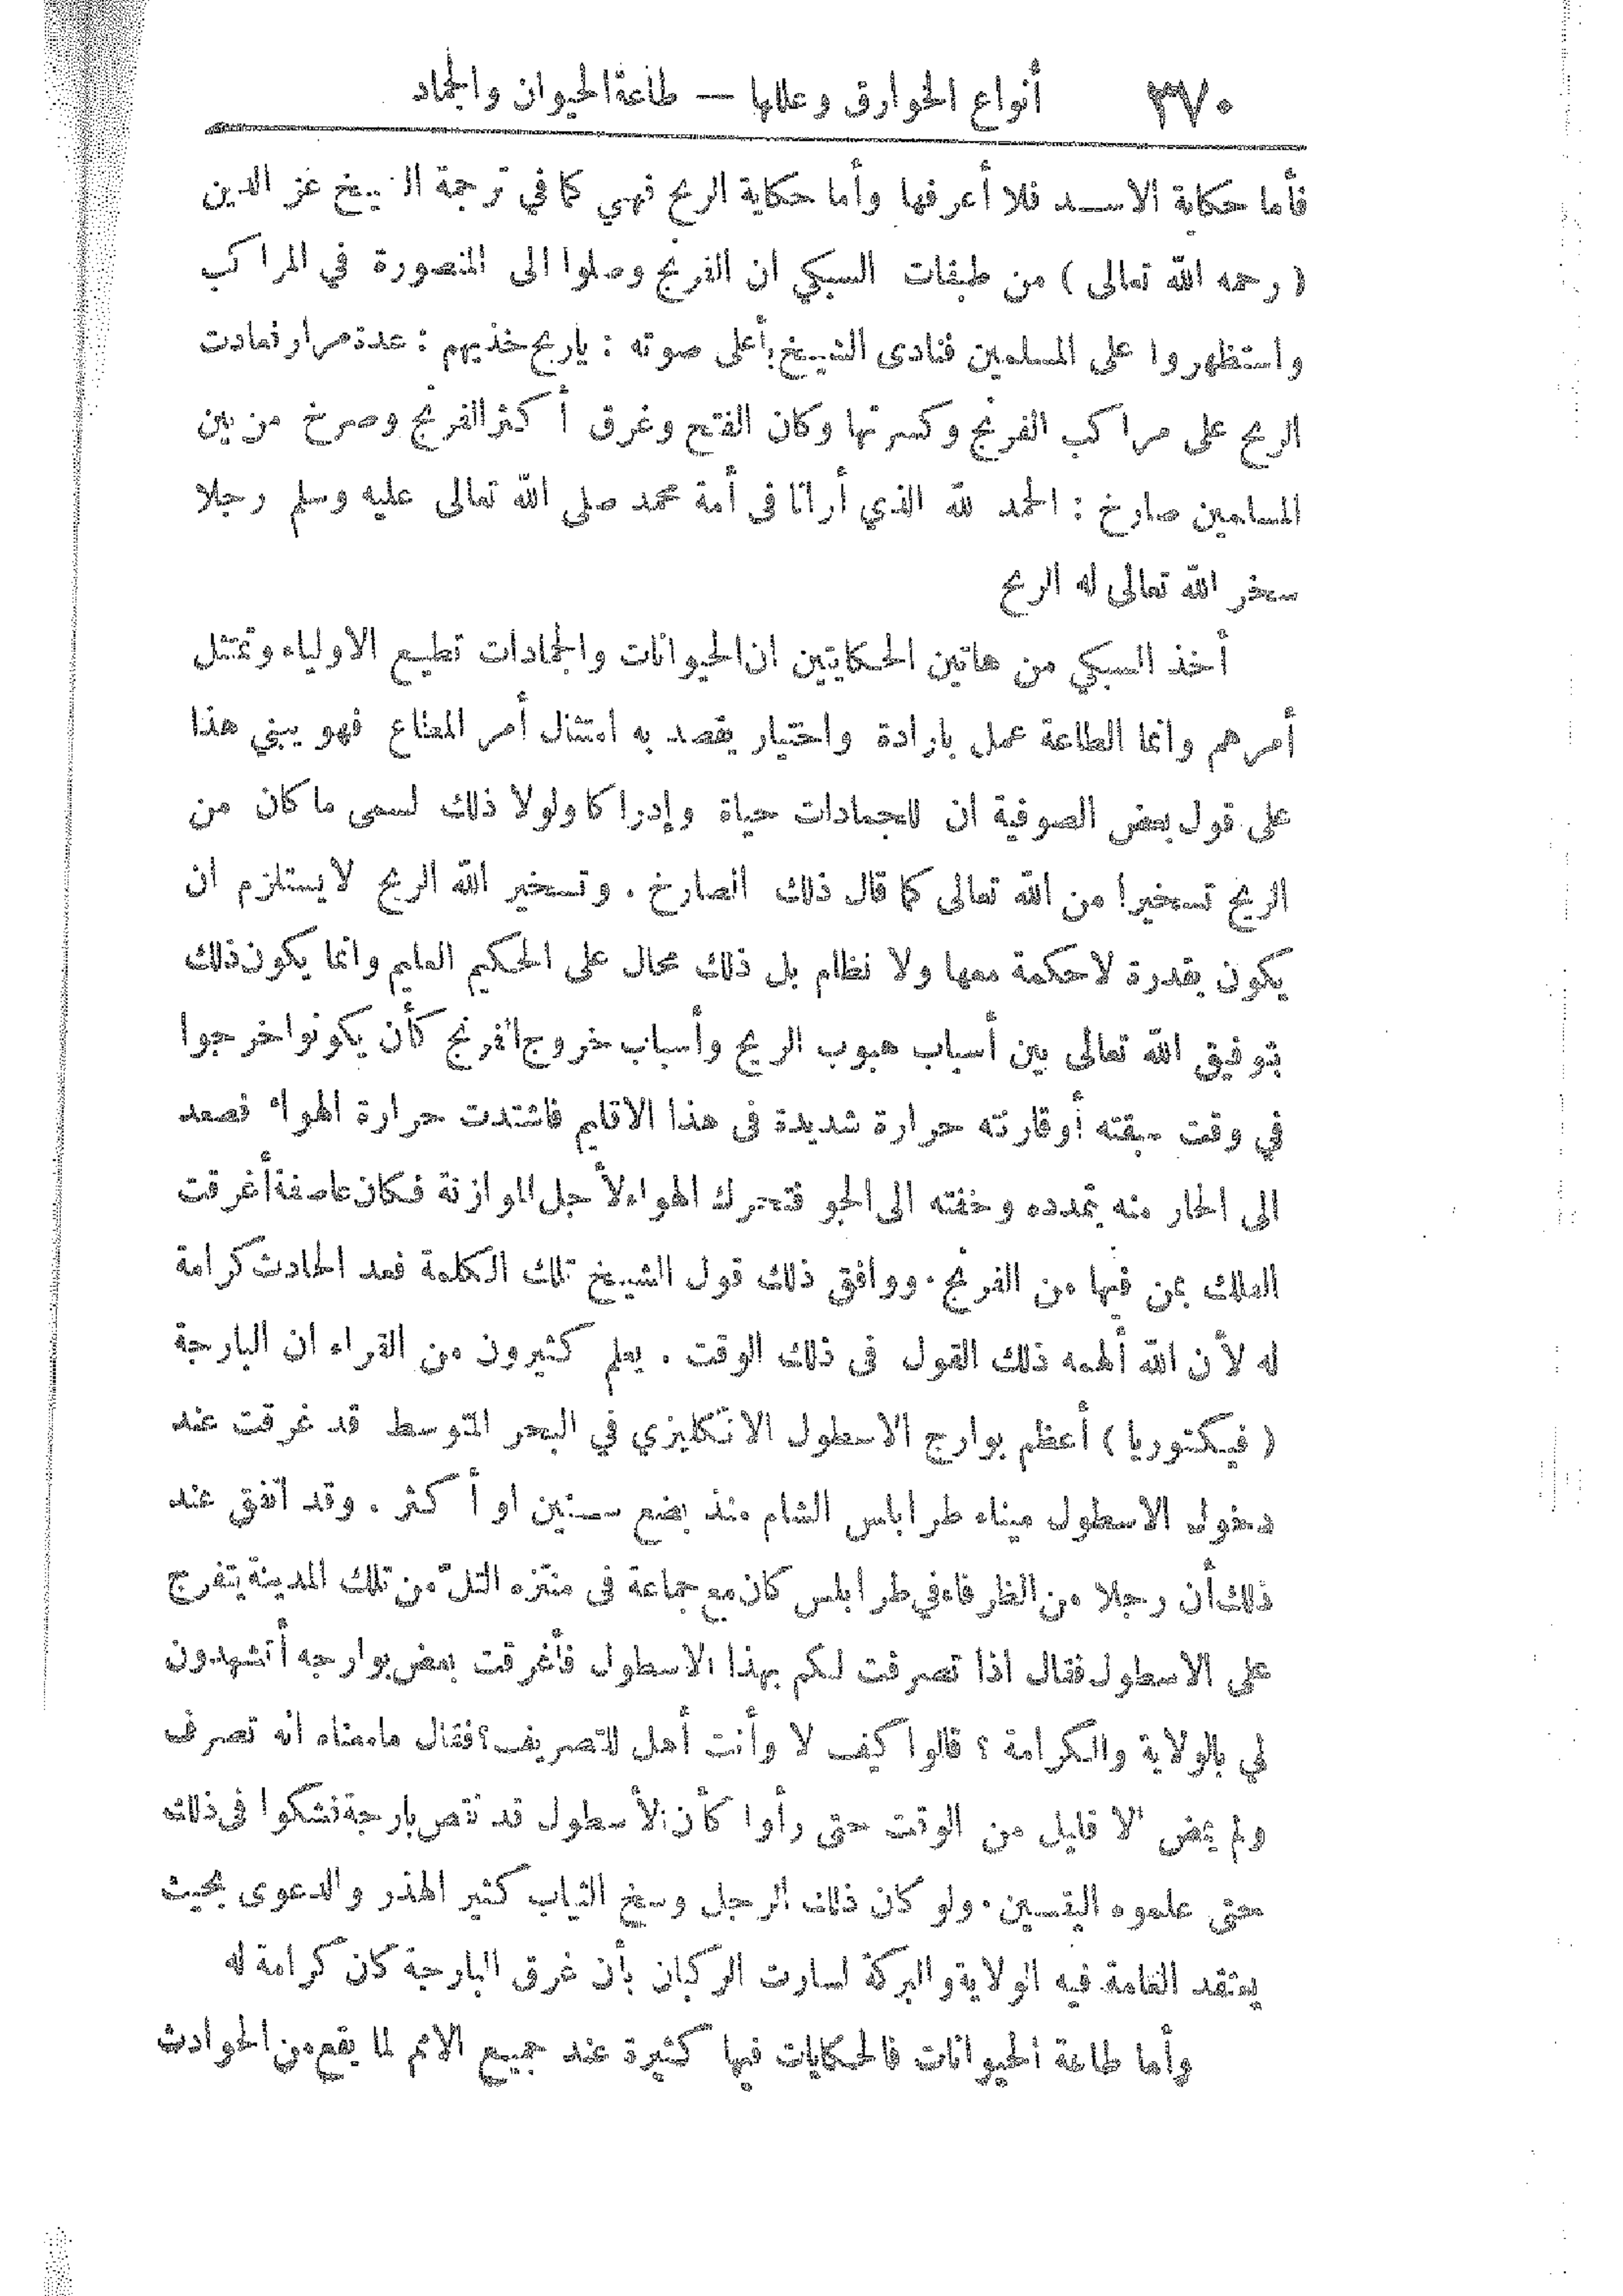 ٣٧٠ أنواع الخوارق وعللها — طاعة الحيوان والجماد
فأما حكاية الاسد فلا أعرفها وأما حكاية الريح فهي كما في ترجمة الشيخ عز الدين
( رحمه الله تعالى ) من طبقات السبكي ان الفرنج وصلوا الى المنصورة في المراكب
واستظهروا على المسلمين فنادى الشيخ بأعلى صوته : ياريح خذيهم : عدة مرار فعادت
الريح على مراكب الفرنج وكسرتها وكان الفتح وغرق أكثر الفرنج وصرخ من بين
المسلمين صارخ : الحمد لله الذي أرانا في أمة محمد صلى الله تعالى عليه وسلم رجلا
سخر الله تعالى له الريح
أخذ السبكي من هاتين الحكايتين ان الحيوانات والجمادات تطيع الاولياء وتمتثل
أمرهم وانما الطاعة عمل بارادة واختيار يقصد به امتثال أمر المطاع فهو يبني هذا
على قول بعض الصوفية ان للجمادات حياة وإدراكا ولولا ذلك لسمى ما كان من
الريح تسخيرا من الله تعالى كما قال ذلك الصارخ . وتسخير الله الريح لا يستلزم ان
يكون بقدرة لاحكمة معها ولا نظام بل ذلك محال على الحكيم العليم وانما يكون ذلك
بتوفيق الله تعالى بين أسباب هبوب الريح وأسباب خروج الفرنج كأن يكونوا خرجوا
في وقت سبقته أوقارنته حرارة شديدة في هذا الاقليم فاشتدت حرارة الهواء فصعد
الى الحار منه بتمدده وخفته الى الجو فتحرك الهواء لأجل الموازنة فكان عاصفة أغرقت
الفلك بمن فيها من الفرنج . ووافق ذلك قول الشيخ تلك الكلمة فعد الحادث كرامة
له لأن الله ألهمه ذلك القول في ذلك الوقت . يعلم كثيرون من القراء ان البارجة
( فيكتوريا ) أعظم بوارج الاسطول الانكليزي في البحر المتوسط قد غرقت عند
دخول الاسطول ميناء طرابلس الشام منذ بضع سنين او أكثر . وقد اتفق عند
ذلك أن رجلا من الظرفاء في طرابلس كان مع جماعة في منتزه التل من تلك المدينة يتفرج
على الاسطول فقال اذا تصرفت لكم بهذا الاسطول فأغرقت بعض بوارجه أتشهدون
لي بالولاية والكرامة ؟ قالوا كيف لا وأنت أهل للتصريف؟ فقال مامعناه انه تصرف
ولم يمض الا قليل من الوقت حتى رأوا كأن الأسطول قد نقص بارجة فشكوا في ذلك
حتى علموه اليقين . ولو كان ذلك الرجل وسخ الثياب كثير الهذر والدعوى بحيث
يعتقد العامة فيه الولاية والبركة لسارت الركبان بأن غرق البارجة كان كرامة له
وأما طاعة الحيوانات فالحكايات فيها كثيرة عند جميع الامم لما يقع من الحوادث